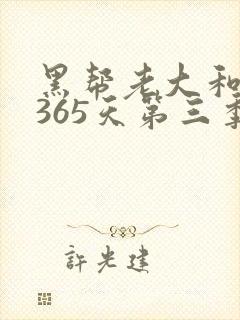 黑帮老大和
365天第三季
許光建